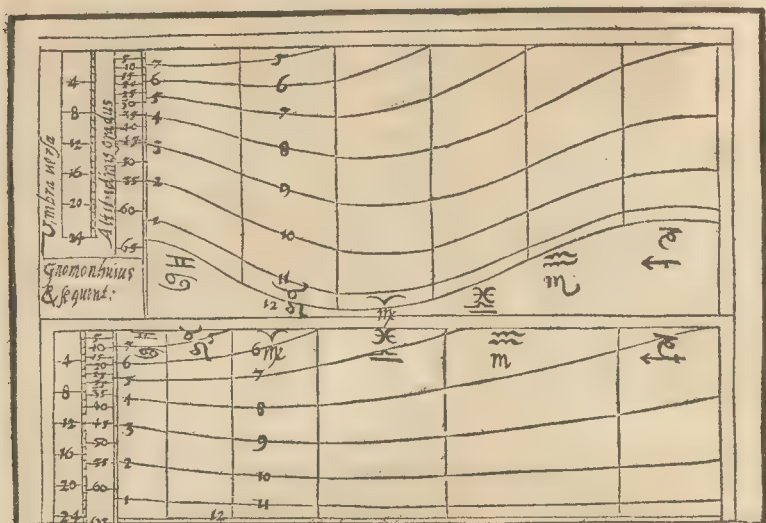 Umbra versa
4
8
12
16
20
24
Altitudinis gradus
5
10
40
45
50
55
60
65
7
6
5
4
3
2
1
5
6
7
8
9
10
11
12
♊
♋
♉
♌
♍
♓
♒
♏
♑
♐
Gnomon huius
& sequent:
4
8
12
16
20
24
5
10
40
45
50
55
60
65
7
6
5
4
3
2
1
6
7
8
9
10
11
12
♊
♋
♉
♌
♍
♓
♒
♏
♑
♐